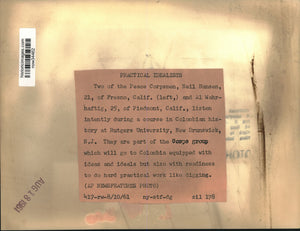 PRACTICAL IDEALISTS
Two of the Peace Corpsmen, Neil Hansen,
21, of Fresno, Calif. (left,) and Al Wahr-
haftig, 25, of Piedmont, Calif., listen
intently during a course in Colombian his-
tory at Rutgers University, New Brunswick,
N.J. They are part of the Corps group
which will go to Colombia equipped with
ideas and ideals but also with readiness
to do hard practical work like digging.
(AP NEWSFEATURES PHOTO)
417-rw-8/10/61 ny-stf-dg sil 178
AUG 18 1961